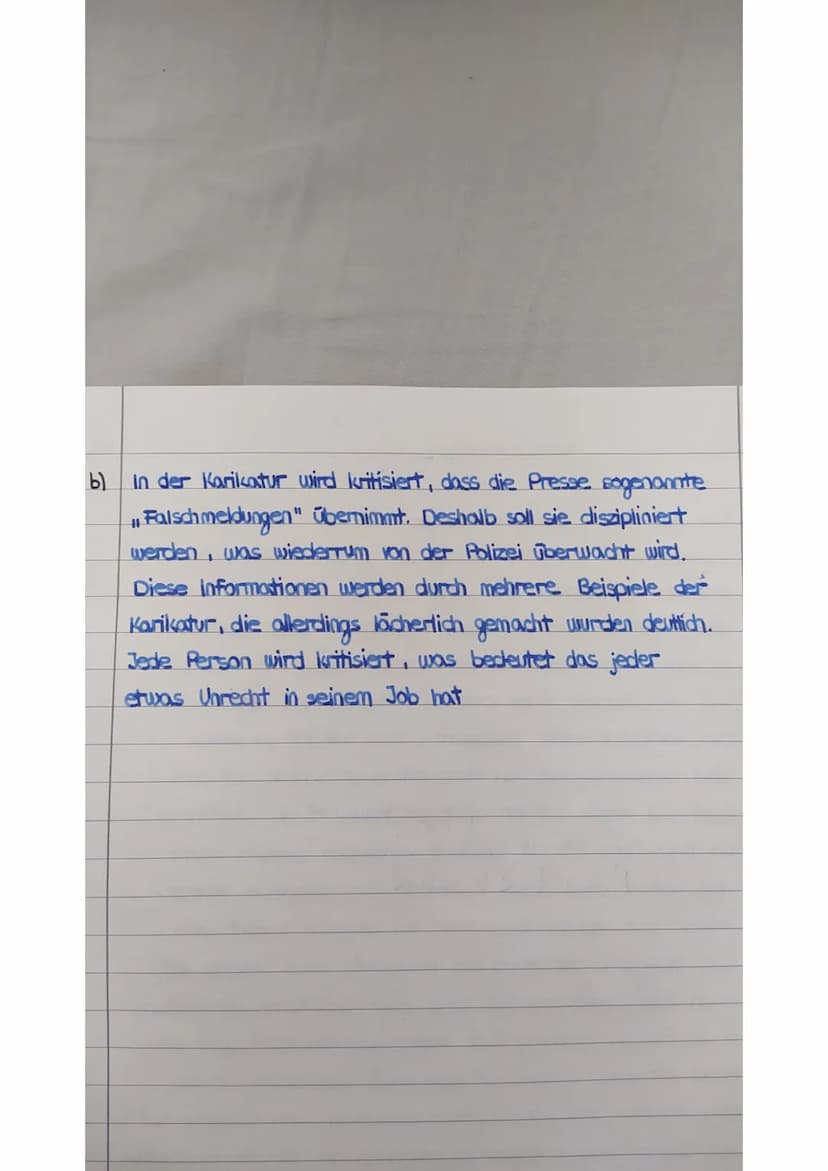 b) In der Karikatur wird kritisiert, dass die Presse sogenannte
„Falschmeldungen" übernimmt. Deshalb soll sie diszipliniert
werden, was wiederrum von der Polizei überwacht wird.
Diese Informationen werden durch mehrere Beispiele der
Karikatur, die allerdings lächerlich gemacht wurden deutlich.
Jede Person wird kritisiert, was bedeutet das jeder
etwas Unrecht in seinem Job hat